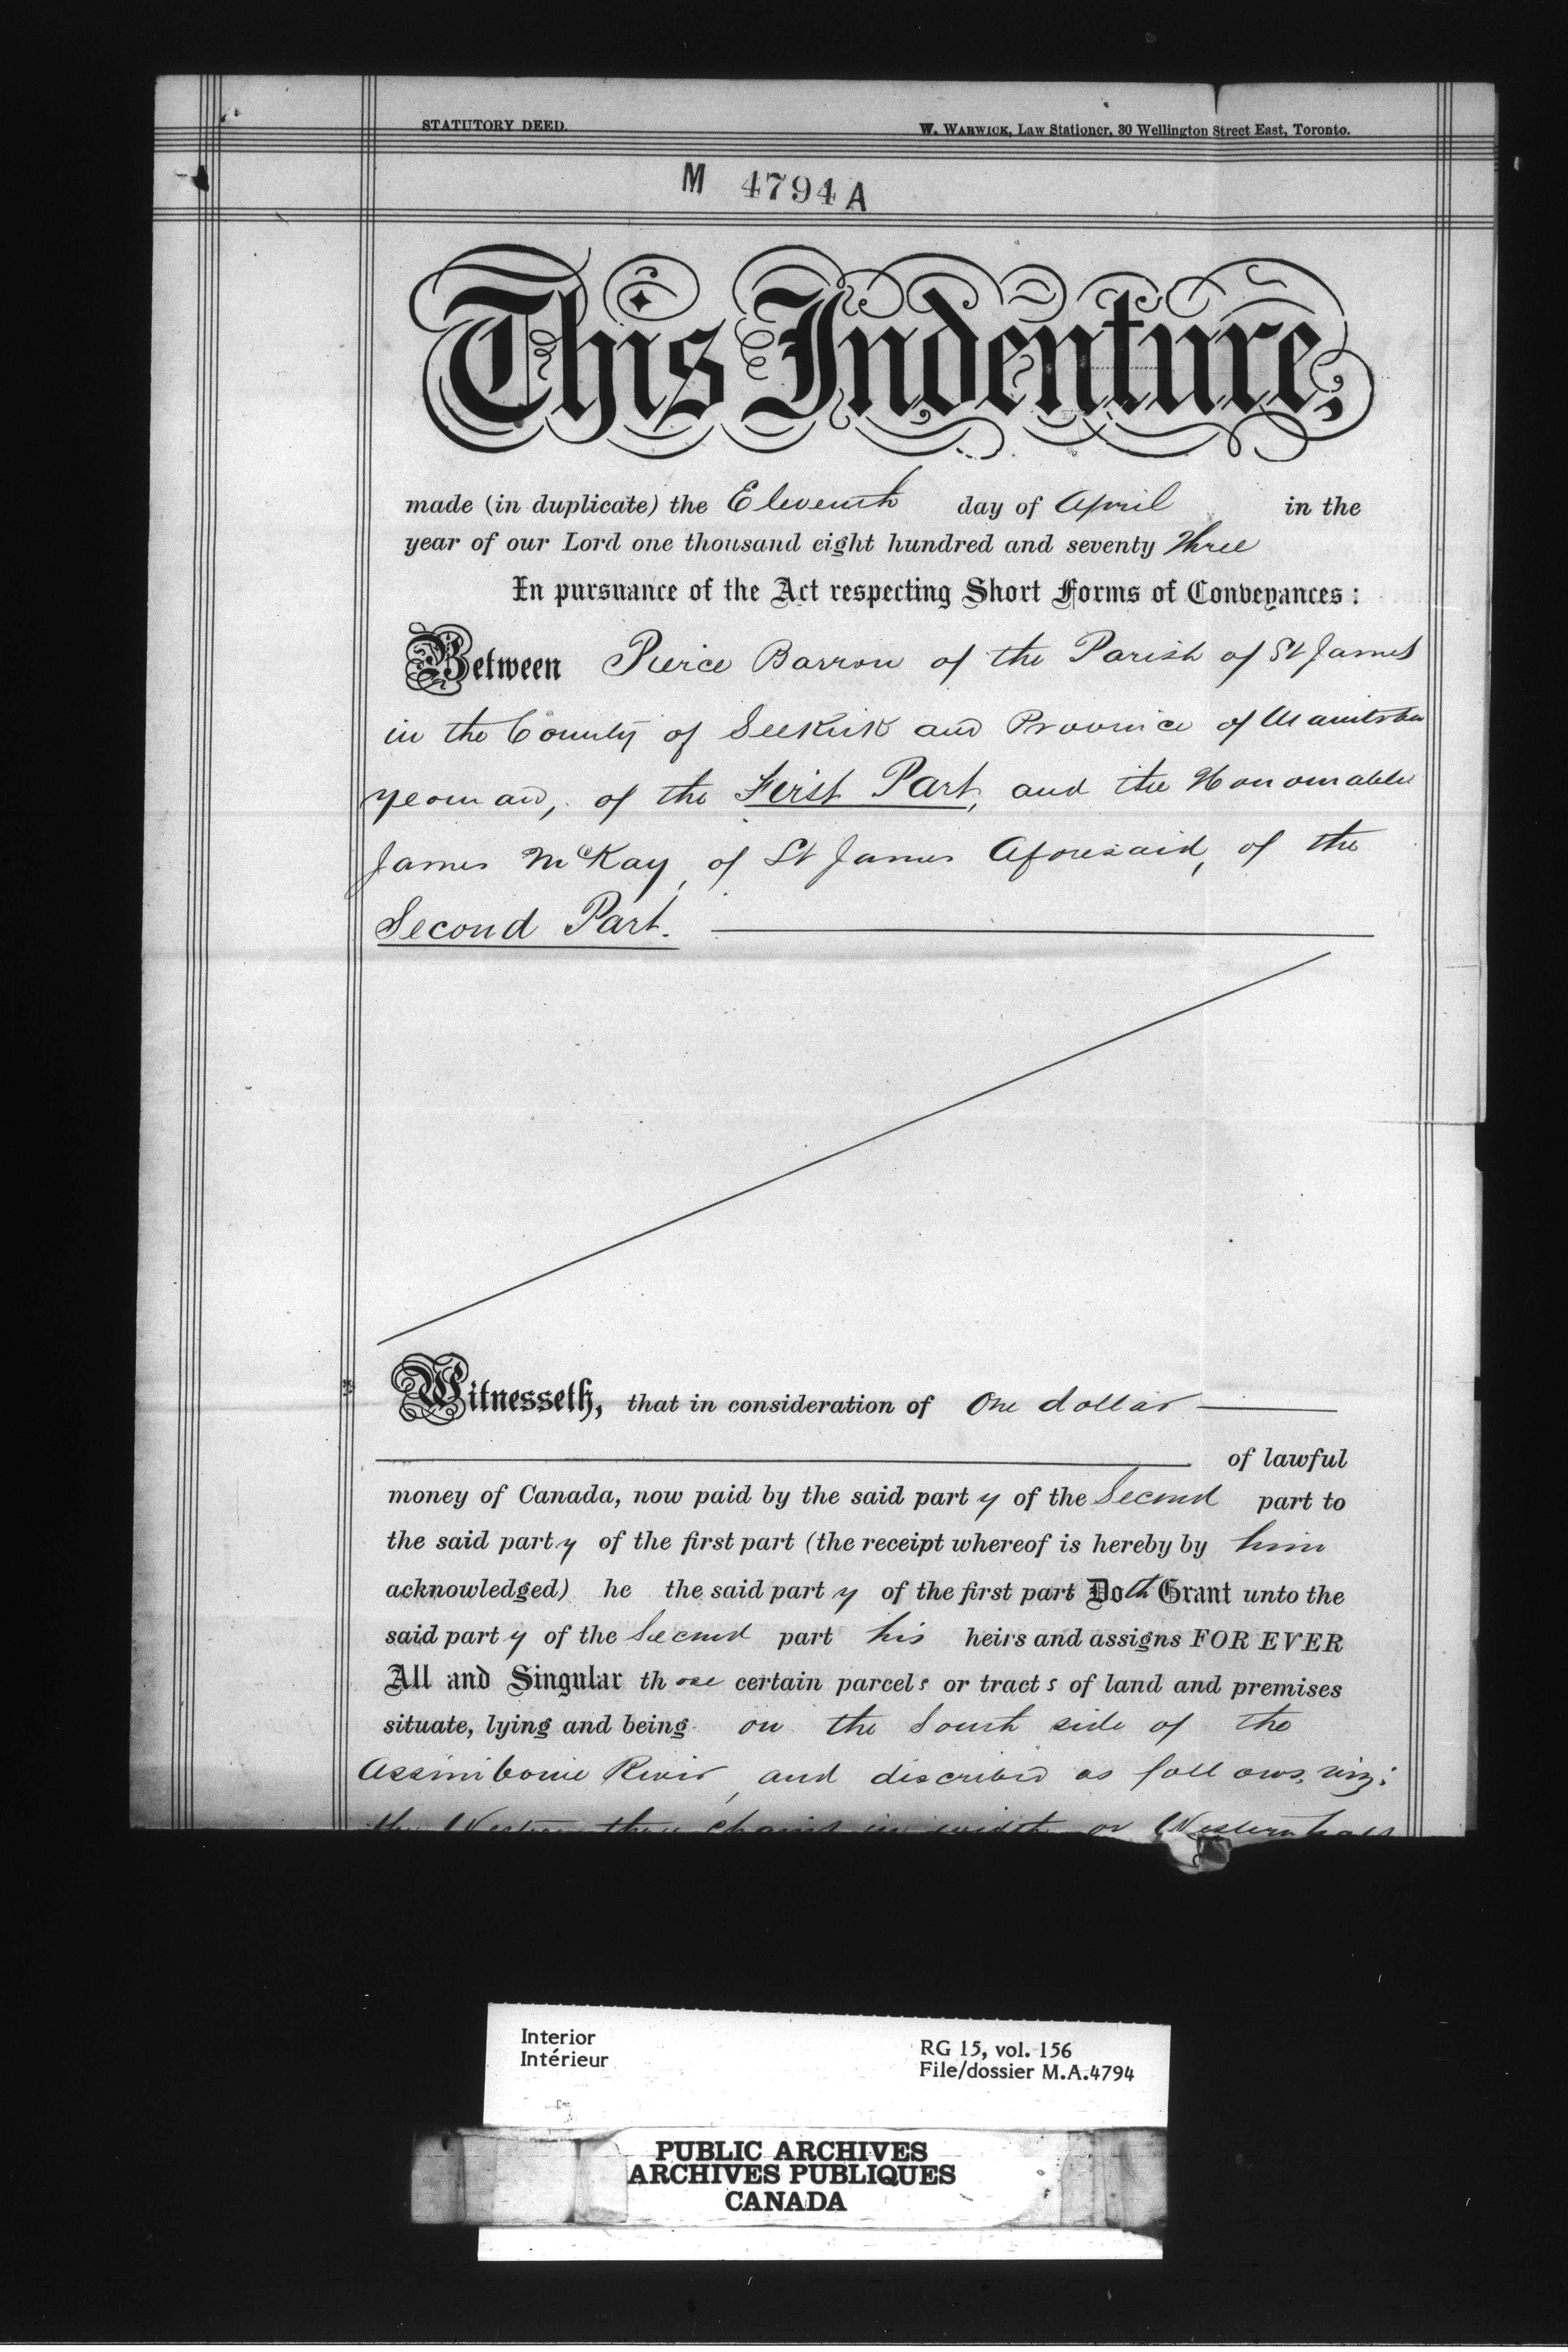 STATUTORY DEED.
W. WARWICK, Law Stationer, 30 Wellington Street East, Toronto.
M 4794 A
This Indenture,
made (in duplicate) the Eleventh day of April in the
year of our Lord one thousand eight hundred and seventy three
In pursuance of the Act respecting Short Forms of Conveyances:
Between Pierce Barron of the Parish of St James
in the County of Selkirk and Province of Manitoba
yeoman, of the First Part, and the Honourable
James McKay, of St James Aforesaid, of the
Second Part.
Witnesseth, that in consideration of One dollar
of lawful
money of Canada, now paid by the said party of the Second part to
the said party of the first part (the receipt whereof is hereby by him
acknowledged) he the said party of the first part Doth Grant unto the
said party of the Second part his heirs and assigns FOR EVER
All and Singular those certain parcels or tracts of land and premises
situate, lying and being on the South side of the
Assiniboine River, and discribed as follows, viz:
the Western three chains in width or Western half
Interior
Intérieur
RG 15, vol. 156
File/dossier M.A.4794
PUBLIC ARCHIVES
ARCHIVES PUBLIQUES
CANADA